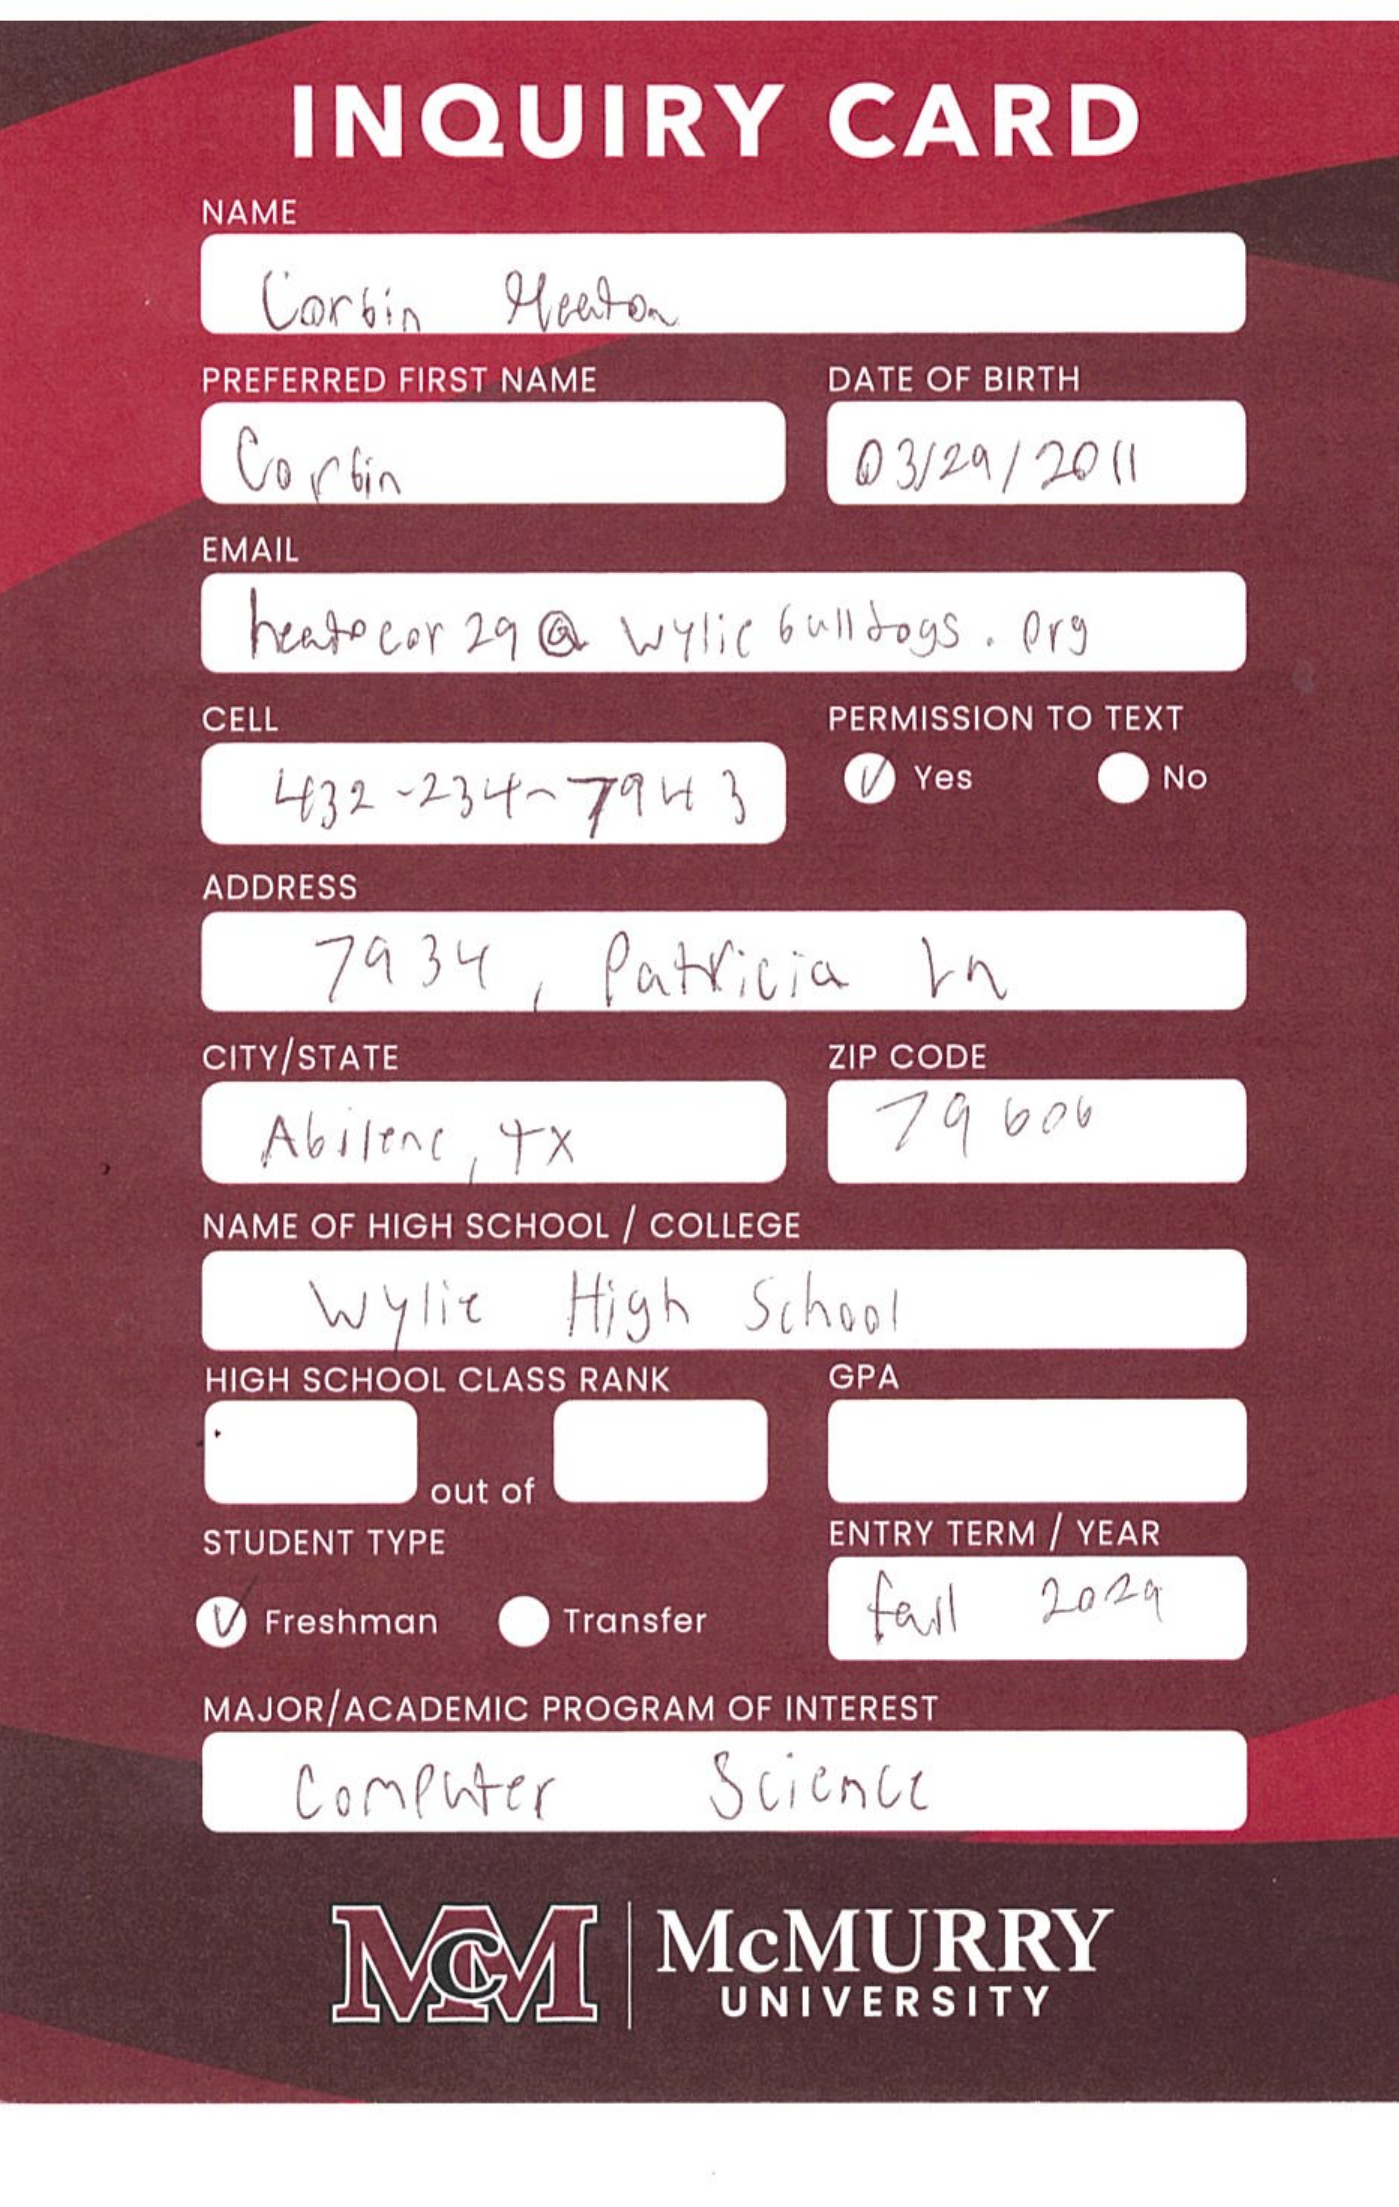 INQUIRY CARD
NAME
Corbin Heaton
PREFERRED FIRST NAME
Corbin
DATE OF BIRTH
03/29/2011
EMAIL
heatocor29@wyliebulldogs.org
CELL
432-234-7943
PERMISSION TO TEXT
Yes
No
ADDRESS
7934, Patricia Ln
CITY/STATE
Abilene, TX
ZIP CODE
79606
NAME OF HIGH SCHOOL / COLLEGE
Wylie High School
HIGH SCHOOL CLASS RANK
out of
GPA
STUDENT TYPE
Freshman
Transfer
ENTRY TERM / YEAR
fall 2029
MAJOR/ACADEMIC PROGRAM OF INTEREST
Computer Science
McM
McMURRY
UNIVERSITY